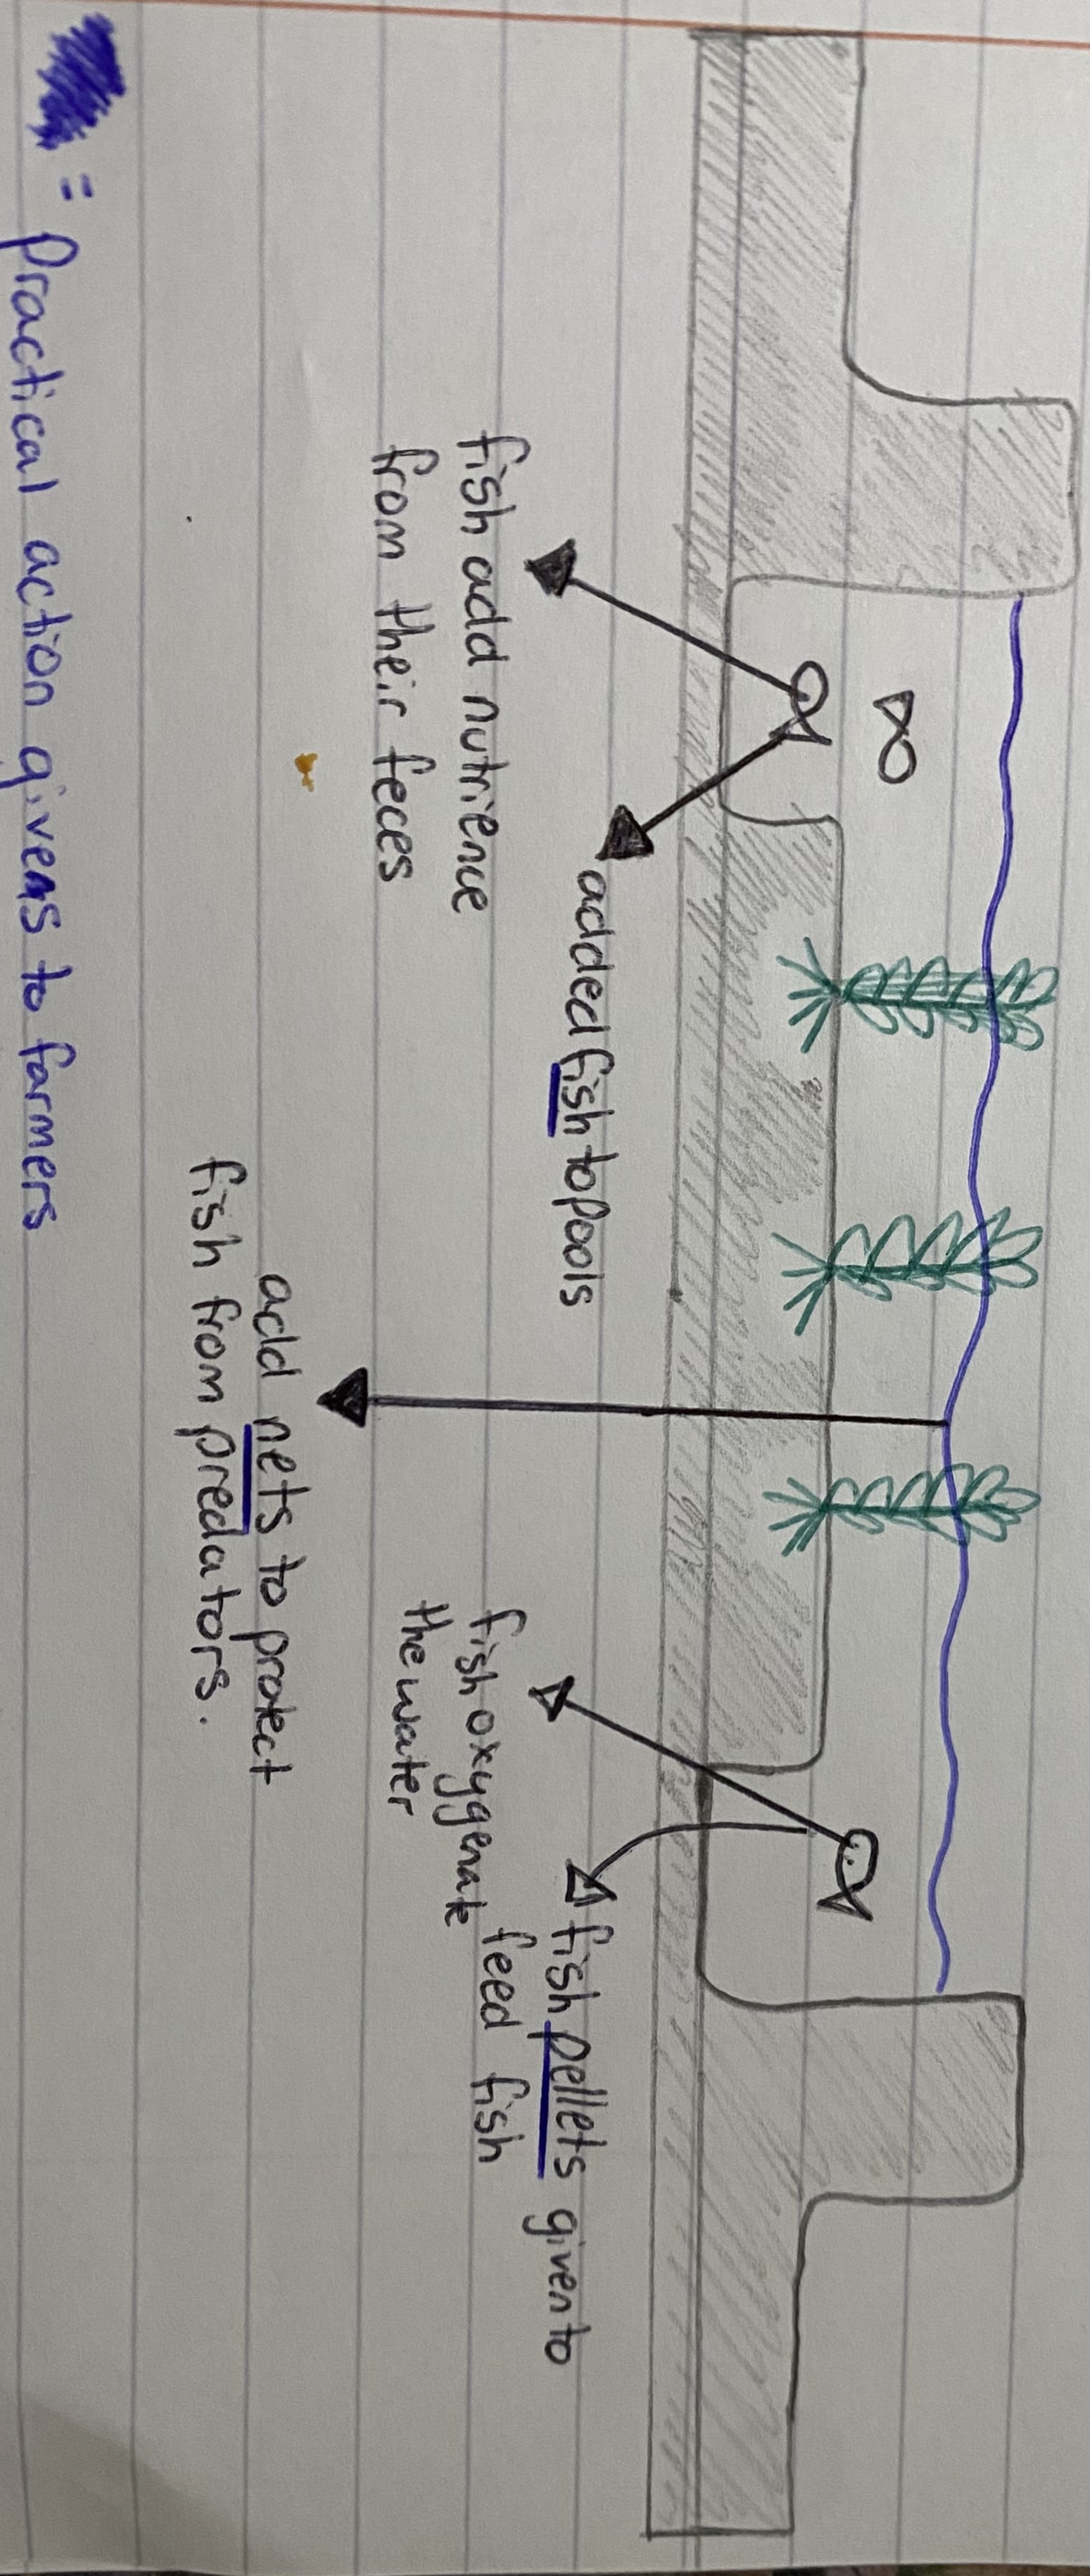 fish add nutrience
from their feces
added fish to pools
add nets to protect
fish from predators.
fish oxygenate
the water
fish pellets given to
feed fish
= Practical action givens to farmers